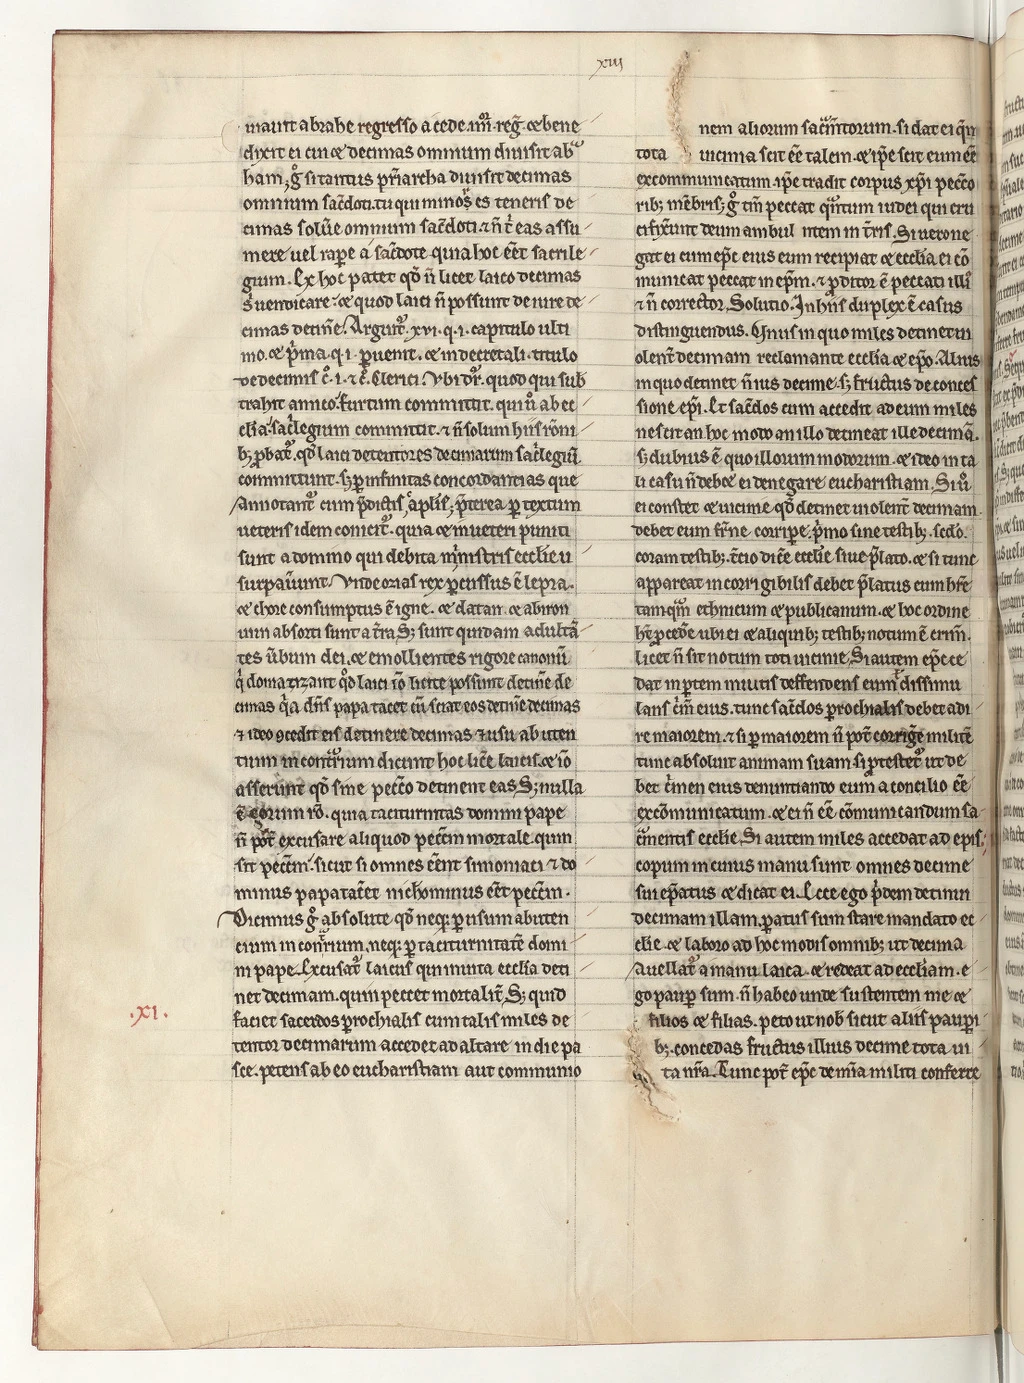 xiii
mauit abrahe regresso a cede .iiii. reg̃. et bene
dixit ei cui et decimas omnium diuisit abͣ
ham; g̊ si tantus pr̃iarcha diuisit decimas
omnium sac̃doti. tu qui minor es teneris de
cimas solũe omnium sac̃doti. ⁊ ñ t̃ eas assu
mere uel rap̃e a sac̃dote quia hoc eẽt sacrile
gium. Ex hoc patet qđ ñ licet laico decimas
uendicare. et quod laici ñ possunt de iure de
cimas detiñe. Argut̃. xvi. q. i. capitulo ulti
mo. et p̃ma. q. i. ꝑuenit. et in decretali titulo
de decimis c̃. i. ⁊ c̃. Clerici. Vbi dr̃. quod qui sub
trahit furtum committit. qui ũ ab ec
clĩa sac̃legium committit. ⁊ ñ solum hiis rõni
bꝫ ꝓbat̃. qđ laici detentores decimarum sac̃legiũ
committunt. sꝫ ꝑ infinitas concordantias que
Annotant̃ cum p̃dictis ap̃lis; p̃terea ꝑ textum
ueteris idem conicit̃. quia et in ueteri puniti
sunt a domino qui debita ministris ecclĩe u
surpaũunt. Vnde ozias rex ꝑcussus ẽ lepra.
et chore consumptus ẽ igne. et datan et abiron
uiui absorti sunt a t̃ra Sꝫ sunt quidam adult̃a
tes ũbum dei. et emollientes rigore canonũ
q̃ domatizant qđ laici iõ licite possunt detiñe de
cimas q̃a dñs papa tacet cũ sciat eos detiñe decimas
⁊ ideo ꝯcedit eis detinere decimas ⁊ usu abuten
tium in cont̃rium dicunt hoc licẽ laicis. et iõ
asserunt qđ sine pecc̃o detinent eas Sꝫ nulla
ẽ eorum rõ. quia taciturnitas domini pape
ñ pot̃ excusare aliquod pecc̃m mortale. quin
sit pecc̃m. sicut si omnes eẽnt simoniaci ⁊ do
minus papa tac̃et nichominus eẽt pecc̃m.
Dicimus g̊ absolute qđ neqꝫ ꝑ usum abuten
cium in cont̃rium. neqꝫ ꝑ taciturnitatẽ domi
ni pape. Excusat̃ laicus qui inuita ecclĩa deti
net decimam. quin peccet mortalit̃. Sꝫ quid
.XI.
faciet sacerdos ꝑrochialis cum talis miles de
tentor decimarum accedet ad altare in die pa
sce. petens ab eo eucharistiam aut communio
nem aliorum sac̃m̃torum. si dat ei q̃m
tota uicinia scit eẽ talem. et ip̃e scit eum eẽ
excommunicatum. ip̃e tradit corpus xp̃i pecc̃o
ribꝫ mẽbris; g̊ tm̃ peccat q̃ntum iudei qui cru
cifix̃unt deum ambulantem in t̃ris. Si uero ne
gat ei cum ep̃c eius eum recipiat et ecclĩa ei cõ
municat peccat in ep̃m. ⁊ ꝓditor ẽ peccati illĩ
⁊ ñ corrector. Solutio. In hiis duplex ẽ casus
distinguendus. Unus in quo miles detinet ui
olent̃ decimam reclamante ecclĩa et ep̃o. Alius
in quo detinet ñ ius decime. sꝫ fructus de conces
sione ep̃i. Et sac̃dos cum accedit ad eum miles
nescit an hoc modo an illo detineat ille decimã.
sꝫ dubius ẽ quo illorum modorum. et ideo in ta
li casu ñ debet ei denegare eucharistiam. Si ũ
ei constet et uicinie qđ detinet uiolent̃ decimam
debet eum fr̃ne corriꝑe. p̃mo sine testibꝫ. sc̃do.
coram testibꝫ. t̃cio dic̃e ecclĩe siue p̃lato. et si tunc
appareat incorrigibilis debet p̃latus eum hr̃e
tamq̃m ethnicum et publicanum. et hoc ordine
hẽt ꝓceđe ubi ei et aliquibꝫ testibꝫ notum ẽ crim̃.
licet ñ sit notum toti uicinie. Si autem ep̃c ce
dat in ꝑtem militis deffendens eum dissimu
lans c̃m̃ eius. tunc sac̃dos ꝑrochialis debet adi
re maiorem. ⁊ si ꝑ maiorem ñ pot̃ corrig̃e militẽ
tunc absoluit animam suam si ꝓtestet̃ ut de
bet c̃men eius denuntiando eum a concilio eẽ
excõmunicatum. et ei ñ eẽ cõmunicandum sa
c̃mentis ecclĩe. Si autem miles accedat ad epis
copum in cuius manu sunt omnes decime
sui ep̃atus et dicat ei. Ecce ego p̃dem detinui
decimam illam. ꝑatus sum stare mandato ec
clĩe. et laboro ad hoc modis omnibꝫ ut decima
Auellat̃ a manu laica et redeat ad ecclĩam. e
go pauꝑ sum. ñ habeo unde sustentem me et
filios et filias. peto ut nob̃ sicut aliis pauꝑi
bꝫ. concedas fructus illius decime tota ui
ta nr̃a. Tunc pot̃ ep̃c de mĩa militi conferre